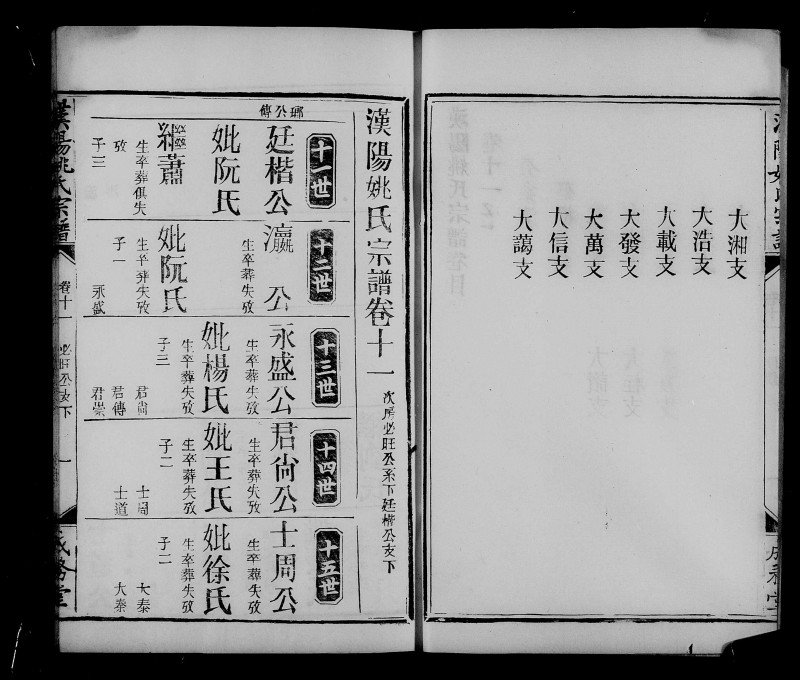 大湘支
大浩支
大載支
大發支
大萬支
大信支
大謁支
漢陽姚氏宗譜卷十一
次房必旺公系下廷楷公支下
十一世
瑯公傳
廷楷公
妣阮氏
繼蕭
生卒葬俱失
攷
子三
十二世
瀛公
生卒葬失攷
妣阮氏
生卒葬失攷
子一
永盛
十三世
永盛公
生卒葬失攷
妣楊氏
生卒葬失攷
子三
君尙
君傳
君崇
十四世
君尙公
生卒葬失攷
妣王氏
生卒葬失攷
子二
士周
士道
十五世
士周公
生卒葬失攷
妣徐氏
生卒葬失攷
子二
大泰
大秦
漢陽姚氏宗譜
卷十一
必旺公支下
一